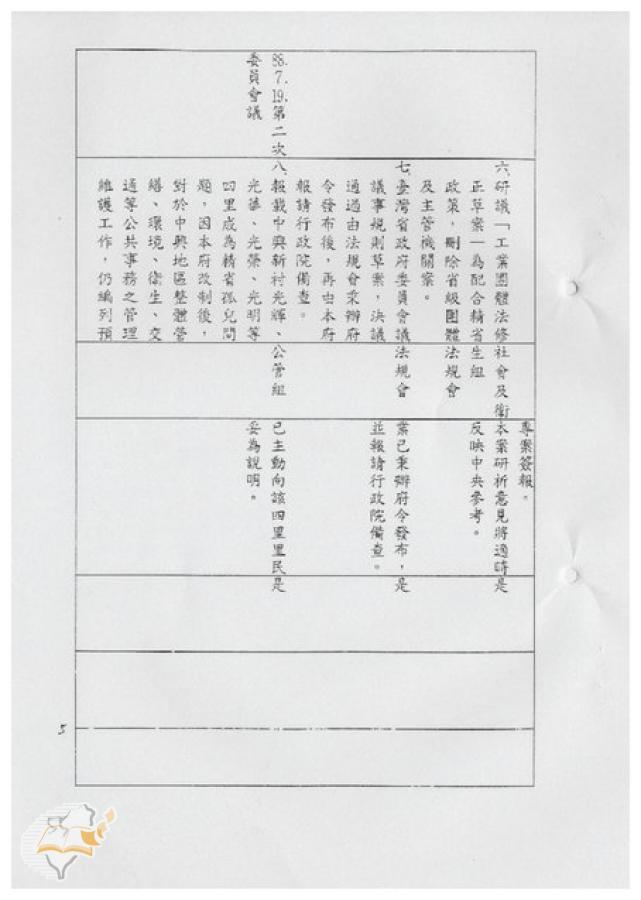 專案簽報。
六、研議「工業團體法修
正草案—為配合精省
政策，刪除省級團體
及主管機關案。
社會及衛
生組
法規會
本案研析意見將適時
反映中央參考。
是
七、臺灣省政府委員會議
議事規則草案，決議
通過由法規會秉辦府
令發布後，再由本府
報請行政院備查。
法規會
業已秉辦府令發布，
並報請行政院備查。
是
88.7.19.第二次
委員會議
八、報載中興新村光輝、
光華、光榮、光明等
四里成為精省孤兒問
題，因本府改制後，
對於中興地區整體營
繕、環境、衛生、交
通等公共事務之管理
維護工作，仍編列預
公管組
已主動向該四里里民
妥為說明。
是
5